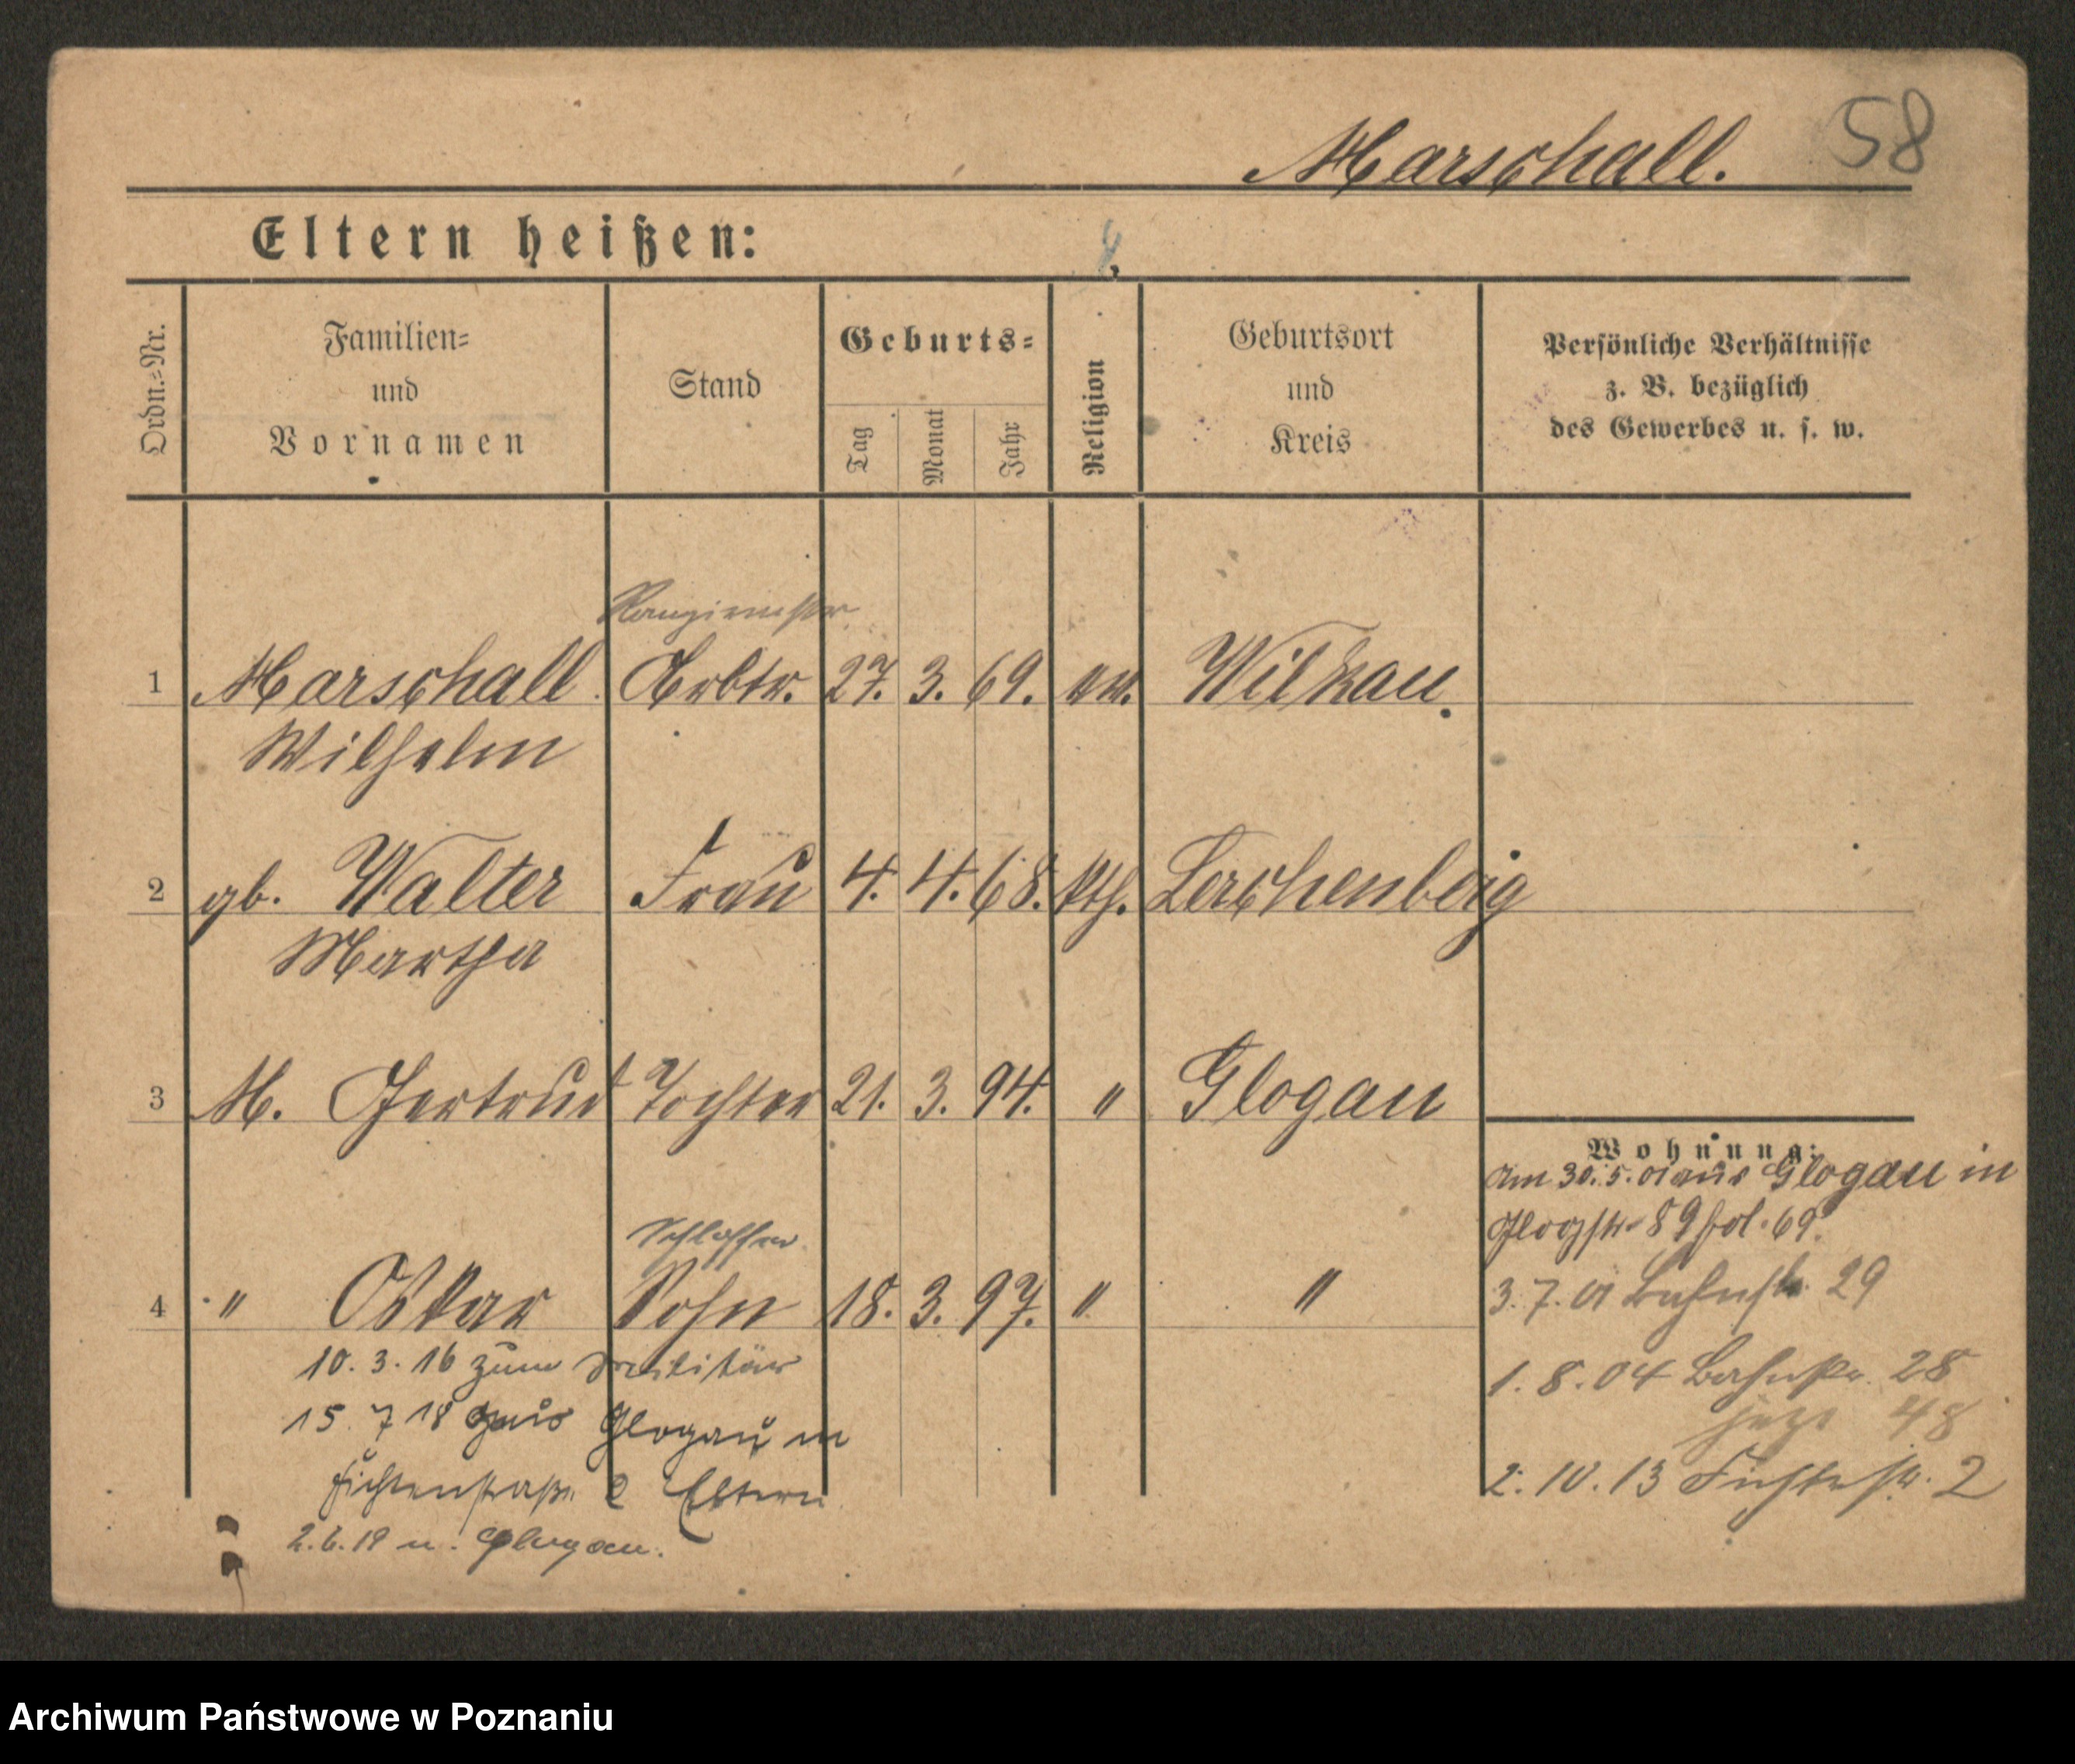 58
Marschall.
Eltern heißen:
Ordn.-Nr.
Familien- und Vornamen
Stand
Geburts-
Tag
Monat
Jahr
Religion
Geburtsort und Kreis
Persönliche Verhältnisse z. B. bezüglich des Gewerbes u. s. w.
1 Marschall Arbtr. 27. 3. 69. ev. Wilkau.
Wilhelm
2 gb. Walter Frau 4. 4. 68. kth. Lerchenberg
Martha
3 M. Gertrud Tochter 21. 3. 94. " Glogau
Wohnung:
am 30.5.01 aus Glogau in
Glogstr. 89 fol. 69.
Schlosser
4 " Oskar Sohn 18. 3. 97. " "
3.7.01 Bahnstr. 29
10.3.16 zum Militär
1.8.04 Bahnstr. 28
jetzt 48
15.7 18 aus Glogau in
Fichtenstraße 2 Eltern
2.10.13 Fichtestr. 2
2.6.19 n. Glogau.
Archiwum Państwowe w Poznaniu